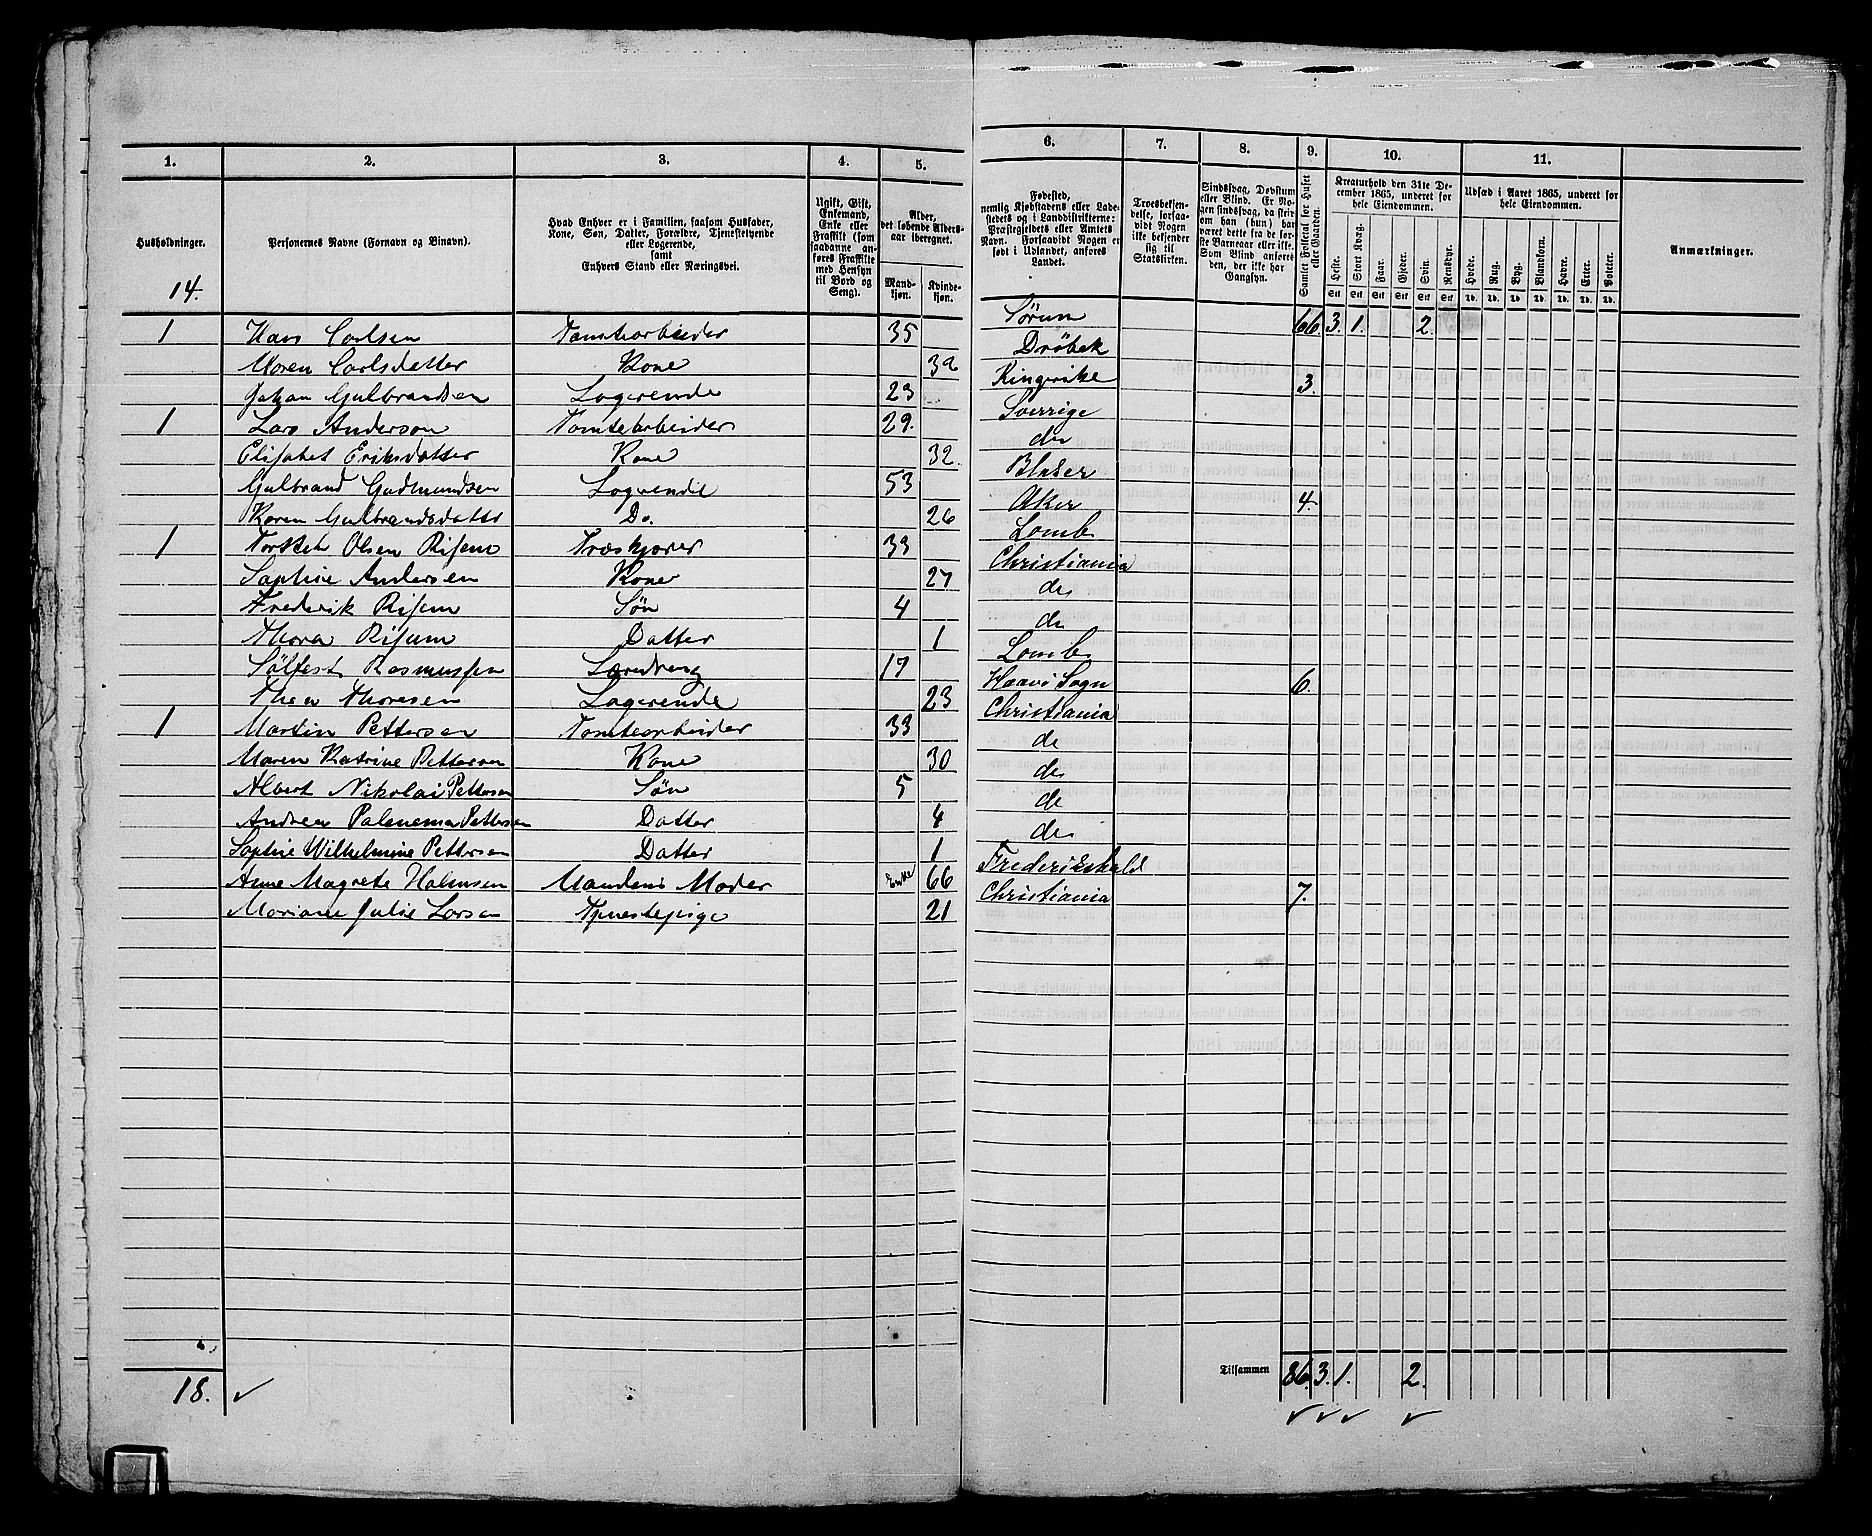 1. 2. 3. 4. 5. 6. 7. 8. 9. 10. 11.
Husholdninger.
Personernes Navne (Fornavn og Binavn).
Hvad Enhver er i Familien, saasom Husfader,
Kone, Søn, Datter, Forældre, Tjenestetyende
eller Logerende,
samt
Enhvers Stand eller Næringsvei.
Ugift, Gift,
Enkemand,
Enke eller
Fraskilt (som
saadanne an-
føres Fraskilte
med Hensyn
til Bord og
Seng).
Alder,
det løbende Alders-
aar iberegnet.
Mand-
kjøn.
Kvinde-
kjøn.
Fødested,
nemlig Kjøbstadens eller Lade-
stedets og i Landdistrikterne:
Præstegjeldets eller Amtets
Navn. Forsaavidt Nogen er
født i Udlandet, anføres
Landet.
Troesbekjen-
delse, forsaa-
vidt Nogen
ikke bekjender
sig til
Statskirken.
Sindssvag, Døvstum
eller Blind. Er No-
gen sindssvag, da hvis
om han (hun) har
været dette fra de før-
ste Barneaar eller ikke.
Som Blind anføres
den, der ikke har
Gangsyn.
Samlet Folketal for Huset
eller Gaarden.
Kreaturhold den 31te De-
cember 1865, underet for
hele Eiendommen.
Heste. Stort Kvæg. Faar. Gjeder. Svin. Rensdyr.
Stk Stk Stk Stk Stk Stk
Udsæd i Aaret 1865, underet for
hele Eiendommen.
Hvede. Rug. Byg. Blandkorn. Havre. Erter. Poteter.
Td. Td. Td. Td. Td. Td. Td.
Anmærkninger.
14.
1 Hans Carlsen Tomtearbeider 35 Sørum 66. 3. 1. 2.
Maren Carlsdatter Kone Drøbak
Johan Gulbrandsen Logerende 23 Ringerike 3.
1 Lars Anderson Tomtearbeider 29. Sverrige
Elisabet Eriksdatter Kone 32. do
Gulbrand Gudmundsen Logerende 53
Karen Gulbrandsdatter Do. 26 Aker 4.
1 Olsen Risem Træskjærer 33 Lomb
Sophie Andersen Kone 27 Christiania
Frederik Risem Søn 4 do
Thora Risum Datter 1 do
Sølfest Rasmussen Læredreng 17 Lomb
Thea Thoresen Logerende 23 Sogn 6.
1 Martin Pettersen Tomtearbeider 33 Christiania
Maren Katrine Pettersen Kone 30 do
Albert Nikolai Pettersen Søn 5 do
Andrea Palenema Pettersen Datter 4 do
Sophie Wilhelmine Pettersen Datter 1 do
Anne Magrete Halmsen Mandens Moder Enke 66 Frederikshald
Mariane Julie Larsen Tjenestepige 21 Christiania 7.
18.
Tilsammen 86. 3. 1. 2.